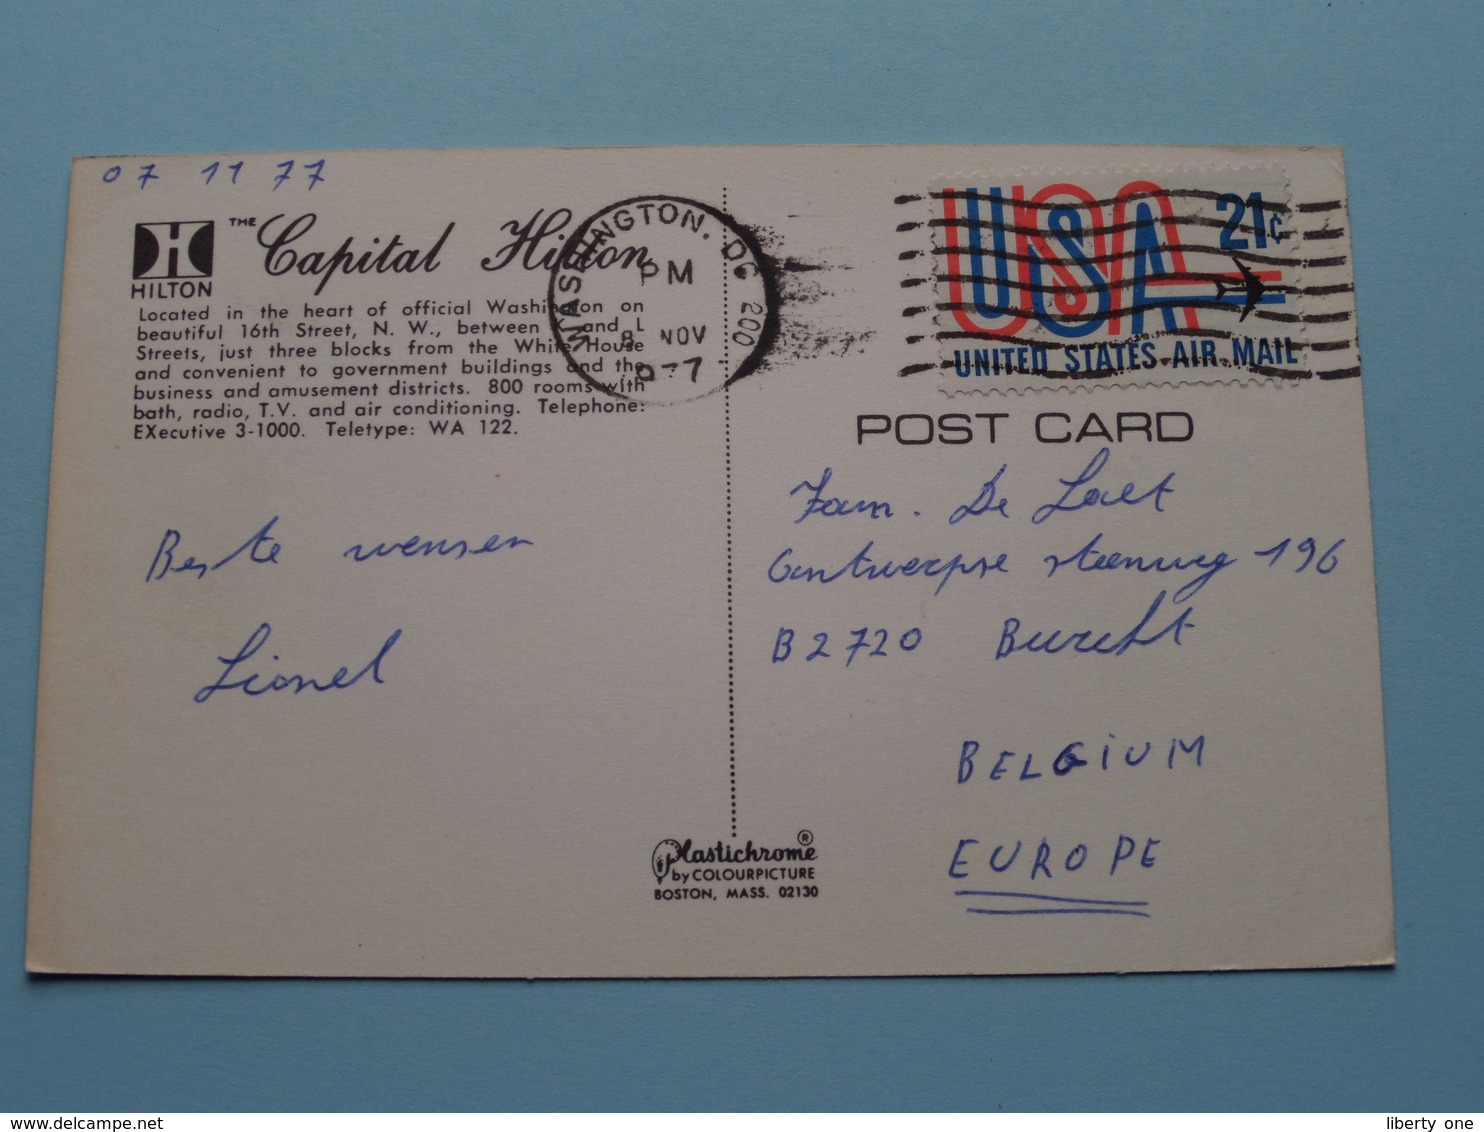 07 11 77
HILTON
THE Capital Hilton
Located in the heart of official Washington on
beautiful 16th Street, N. W., between and L
Streets, just three blocks from the White House
and convenient to government buildings and the
business and amusement districts. 800 rooms with
bath, radio, T.V. and air conditioning. Telephone:
EXecutive 3-1000. Teletype: WA 122.
WASHINGTON, DC 200
PM
8 NOV
1977
USA 21c
UNITED STATES AIR MAIL
POST CARD
Beste wensen
Lionel
Fam. De Laet
Antwerpse steenweg 196
B2720 Burcht
BELGIUM
EUROPE
Plastichrome ®
by COLOURPICTURE
BOSTON, MASS. 02130
www.delcampe.net
liberty one